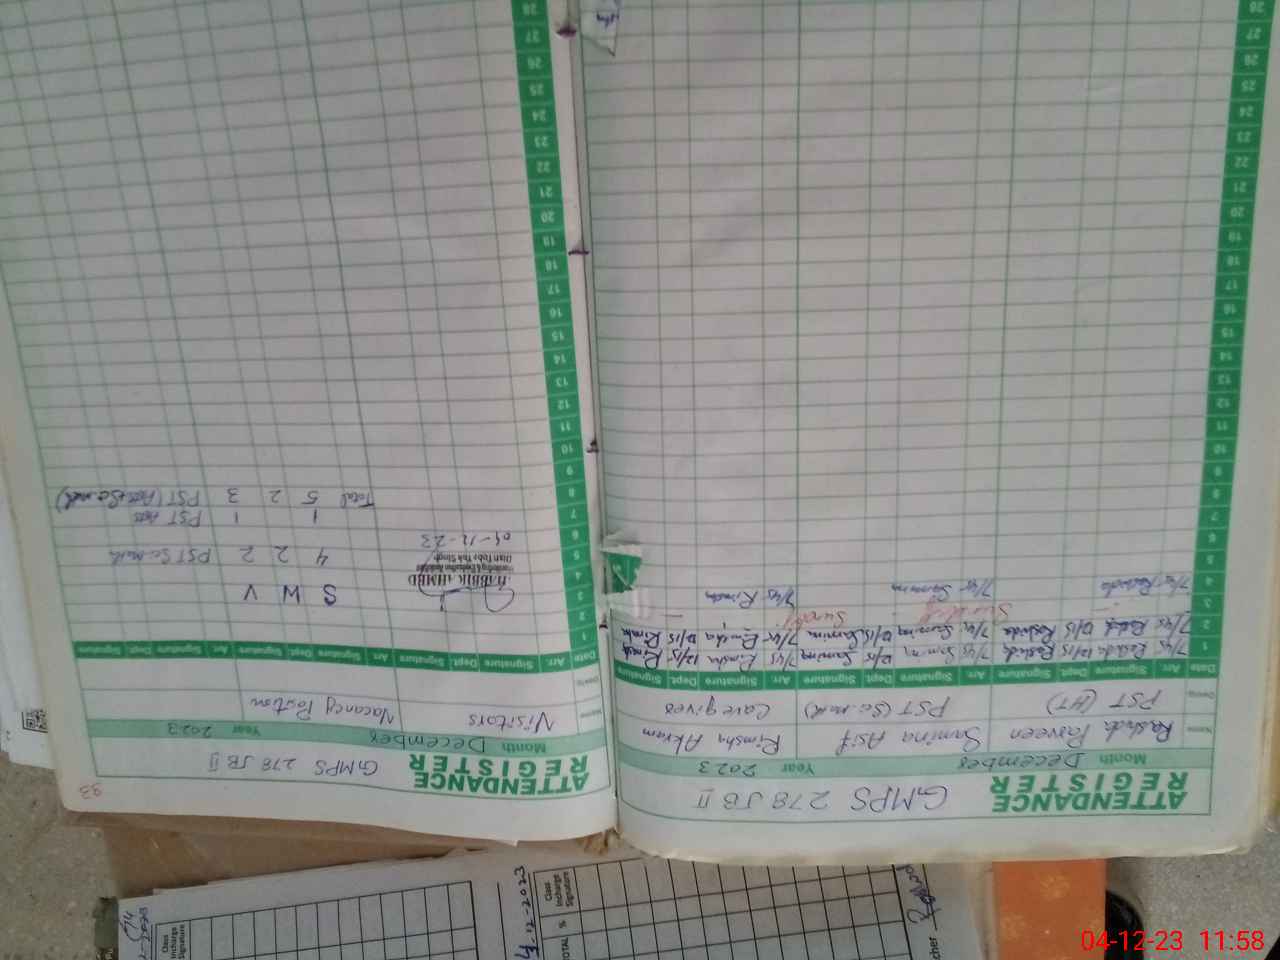 ATTENDANCE REGISTER GMPS 278 JB II
Month December Year 2023
Name Rashida Parveen Samina Asif Rimsha Akram
Desig: PST (HT) PST (Sc. math) Care giver
Date Arr. Signature Dept. Signature Arr. Signature Dept. Signature Arr. Signature Dept. Signature
1 7/45 Rashida 12/15 Rashida 7/45 Samina 12/15 Samina 7/45 Rimsha 12/15 Rimsha
2 7/45 Rashida 12/15 Rashida 7/45 Samina 12/15 Samina 7/45 Rimsha 12/15 Rimsha
3 Sunday Sunday
4 7/45 Rashida 7/45 Samina 7/45 Rimsha
5
6
7
8
9
10
11
12
13
14
15
16
17
18
19
20
21
22
23
24
25
26
27
28
ATTENDANCE REGISTER GMPS 278 JB II
93
Month December Year 2023
Name Visitors Vacancy Position
Desig:
Date Arr. Signature Dept. Signature Arr. Signature Dept. Signature Arr. Signature Dept. Signature
1
2
3 S W V
4 HABBIR AHMED
Monitoring & Evaluation Assistant
5 Distt Toba Tek Singh 4 2 2 PST Sc. math
6 04-12-23
7 1 1 PST Arts
8 Total 5 2 3 PST (Arts+Sc. math)
9
10
11
12
13
14
15
16
17
18
19
20
21
22
23
24
25
26
27
28
Class Incharge Signature
4-12-2023
Class Incharge Signature
TOTAL %
04-12-23 11:58